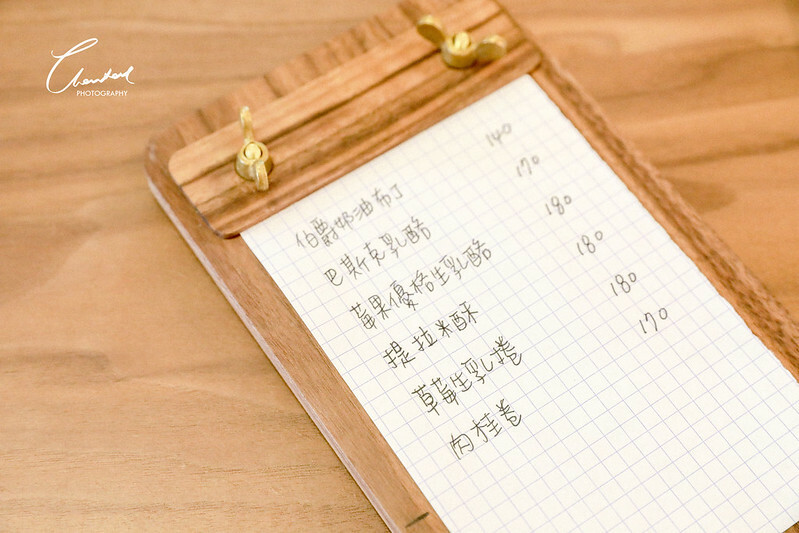 伯爵奶油布丁 140
巴斯克乳酪 170
莓果優格生乳酪 180
提拉米酥 180
草莓生乳捲 180
肉桂卷 170
PHOTOGRAPHY